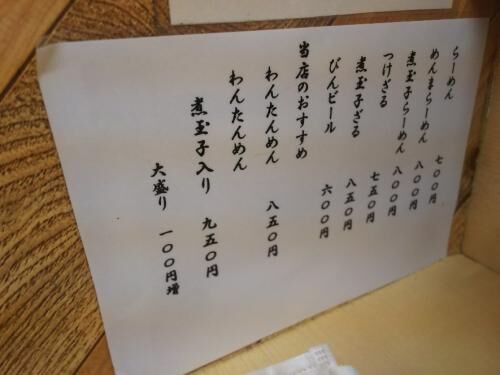 らーめん 七〇〇円
めんまらーめん 八〇〇円
煮玉子らーめん 八〇〇円
つけざる 七五〇円
煮玉子ざる 八五〇円
びんビール 六〇〇円
当店のおすすめ
わんたんめん 八五〇円
わんたんめん
煮玉子入り 九五〇円
大盛り 一〇〇円増